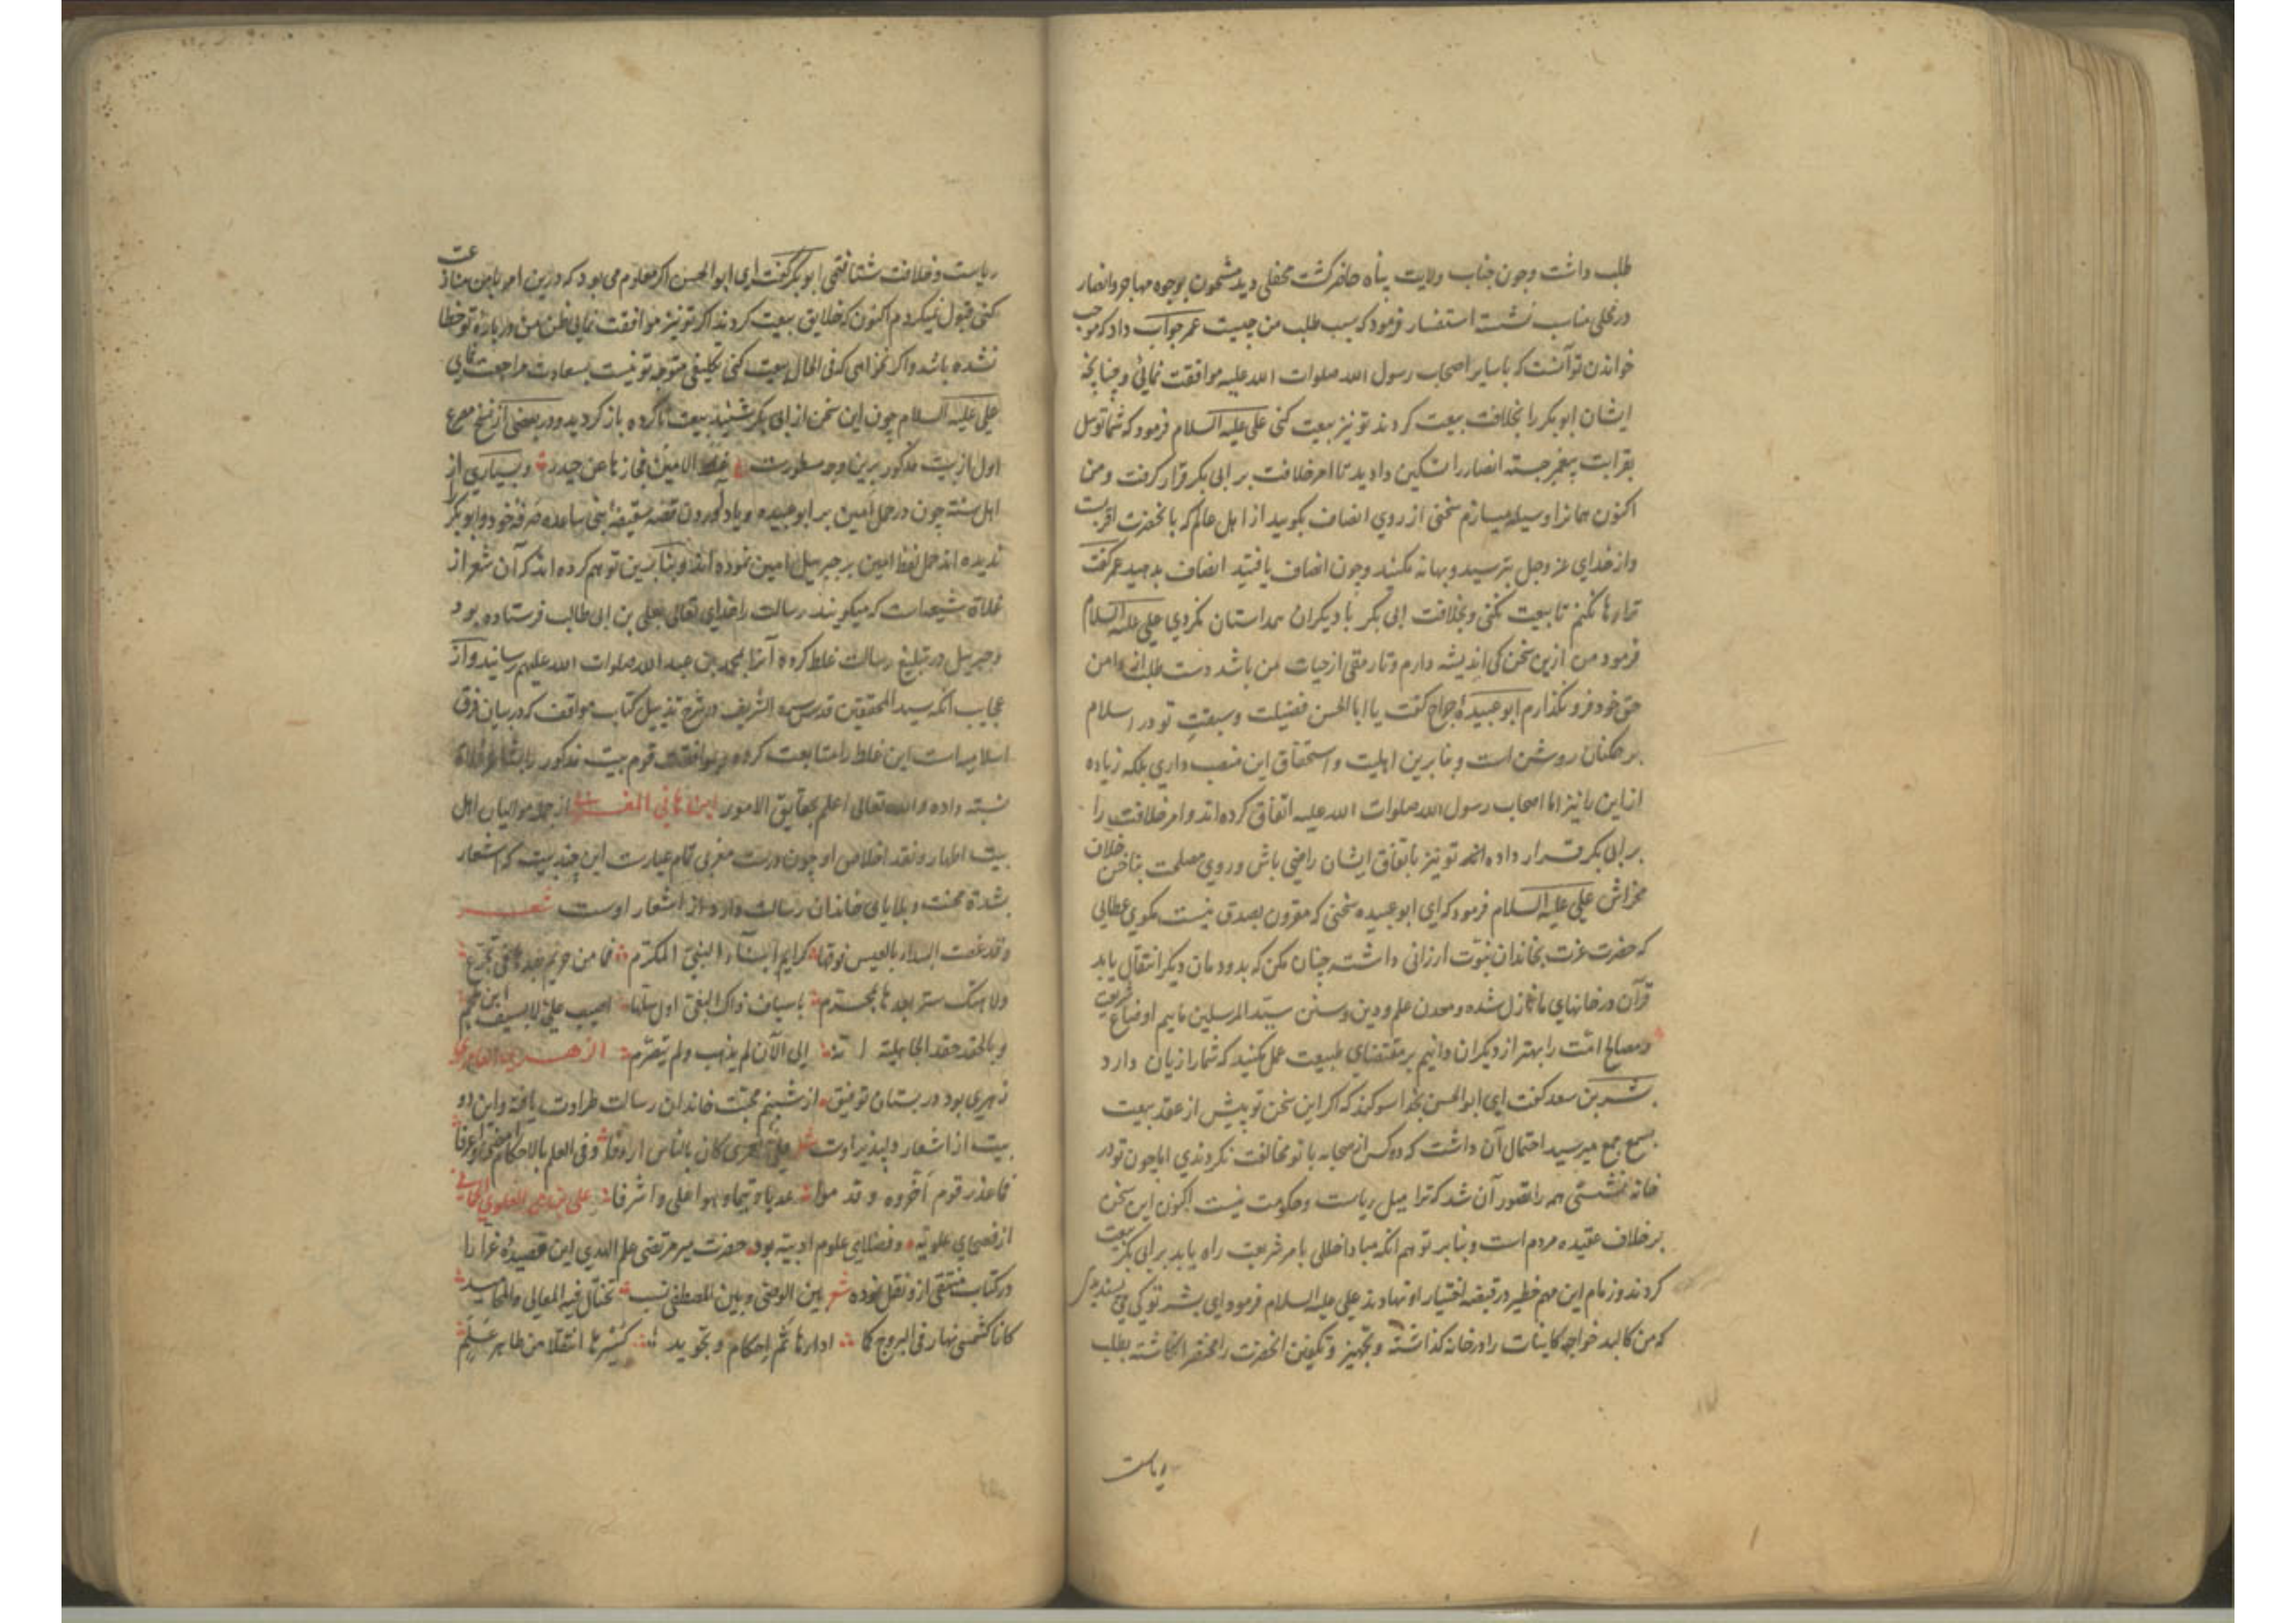 طلب داشت وچون جناب ولایت پناه حاضر کشت محفلی دید مشحون بوجوه مهاجر وانصار
در محلی مناسب نشست استفسار فرمود که سبب طلب من چیست عمر جواب داد که موجب
خواندن تو آنست که با سایر اصحاب رسول الله صلوات الله علیه موافقت نمائی وچنانچه
ایشان ابوبکر را بخلافت بیعت کردند تو نیز بیعت کنی علی علیه السلام فرمود که شما توسل
بقرابت پیغمبر جسته انصار را تسکین دادید تا امر خلافت بر ابی بکر قرار کرفت ومن
اکنون همانرا وسیله میسازم سخنی از روی انصاف بکویید از اهل عالم که بانحضرت اقربست
واز خدای عز وجل بترسید وبهانه مکنید وچون انصاف یافتید انصاف بدهید عمر کفت
ترا رها نکنم تا بیعت نکنی وبخلافت ابی بکر با دیکران همداستان نکردی علی علیه السلام
فرمود من ازین سخن کی اندیشه دارم وتا رمقی از حیات من باشد دست طلب از دامن
حق خود فرو نکذارم ابو عبیده جراح کفت یا ابا الحسن فضیلت وسبقت تو در اسلام
بر همکنان روشن است وبنابرین اهلیت واستحقاق این منصب داری بلکه زیاده
از این را نیز اما اصحاب رسول الله صلوات الله علیه اتفاق کرده اند وامر خلافت را
بر ابی بکر قرار داده اند تو نیز باتفاق ایشان راضی باش وروی مصلحت بناخن خلاف
مخراش علی علیه السلام فرمود که ای ابو عبیده سخنی که مقرون بصدق نیست مکوی عطایی
که حضرت عزت بخاندان نبوت ارزانی داشته چنان مکن که بدودمان دیکر انتقال یابد
قرآن در خانهای ما نازل شده ومعدن علم ودین وسنن سید المرسلین ماییم اوضاع شریعت
ومصالح امت را بهتر از دیکران دانیم بر مقتضای طبیعت عمل مکنید که شما را زیان دارد
بشر بن سعد کفت ای ابو الحسن بخدا سوکند که اکر این سخن تو پیش از عقد بیعت
بسمع جمع میرسید احتمال آن داشت که دو کس از صحابه با تو مخالفت نکردندی اما چون تو در
خانه نشستی همه را تصور آن شد که ترا میل ریاست وحکومت نیست اکنون این سخن
برخلاف عقیده مردم است وبنابر توهم آنکه مبادا خللی بامر شریعت راه یابد بر ابی بکر بیعت
کردند وزمام این مهم خطیر در قبضه اختیار او نهادند علی علیه السلام فرمود ای بشر تو کی می پسندیدی
که من کالبد خواجه کاینات را در خانه کذاشته وتجهیز وتکفین انحضرت را محقر انکاشته بطلب
ریاست
ریاست وخلافت شتافتمی ابوبکر کفت ای ابو الحسن اکر معلوم می بود که درین امر با من منازعت
کنی قبول نمیکردم اکنون که خلایق بیعت کردند اکر تو نیز موافقت نمایی ظن من در باره تو خطا
نشده باشد واکر نخواهی که فی الحال بیعت کنی تکلیفی متوجه تو نیست بسعادت مراجعت نمای
علی علیه السلام چون این سخن از ابی بکر شنید بیعت ناکرده باز کردید ودر بعضی از نسخ مصرع
اول از بیت مذکور برین وجه مسطورست غلط الامین فجازها عن حیدر وبسیاری از
اهل سنته چون در حمل امین بر ابو عبیده ویاد آوردن قصه سقیفه بنی ساعده صرفه خود وابوبکر را
ندیده اند حمل لفظ امین بر جبرییل امین نموده اند وبنابرین توهم کرده اند که آن شعر از
غلاة شیعه است که میکویند رسالت را خدای تعالی بعلی بن ابی طالب فرستاده بود
وجبرییل در تبلیغ رسالت غلط کرده آنرا بمحمد بن عبد الله صلوات الله علیهم رسانید واز
عجایب آنکه سید المحققین قدس سره الشریف در شرح تذییل کتاب مواقف که در بیان فرق
اسلامیه است این غلط را متابعت کرده وبموافقت قوم بیت مذکور را بشاعر غلاة
نسبته داده والله تعالی اعلم بحقایق الامور ابن هانی المغربی از جمله موالیان اهل
بیت اطهار ونقد اخلاص او چون درست مغربی تمام عیارست این چند بیت که اشعار
بشدة محنت وبلایای خاندان رسالت دارد از اشعار اوست شعر
وقد غصت البیداء بالعیس فوقها کرایم ابناء النبی المکرم فما من حریم بعدها فی تحرج
ولا هتک ستر بعدها بمحرم باسیاف ذاک البغی اول سلها اصیب علی لا بسیف ابن ملجم
وبالحقد حقد الجاهلیة انه الی الآن لم یذهب ولم یتصرم
زهری بود در بستان توفیق از شبنم محبت خاندان رسالت طراوت یافته واین دو
بیت از اشعار دلپذیر اوست
فما عذر قوم اخروه وقد موا عدیا وتیما وهو اعلی واشرفا
از فصحای علویه وفضلای علوم ادبیه بود حضرت میر مرتضی علم الهدی این قصیده غرا را
در کتاب منتقی ازو نقل نموده شعر بین الوصی وبین المصطفی نسب تختال فیه المعالی والمحامید
کانا کشمس نهار فی البروج کما ادارها ثم احکام وتجوید کسیرها انتقلا من طاهر علم